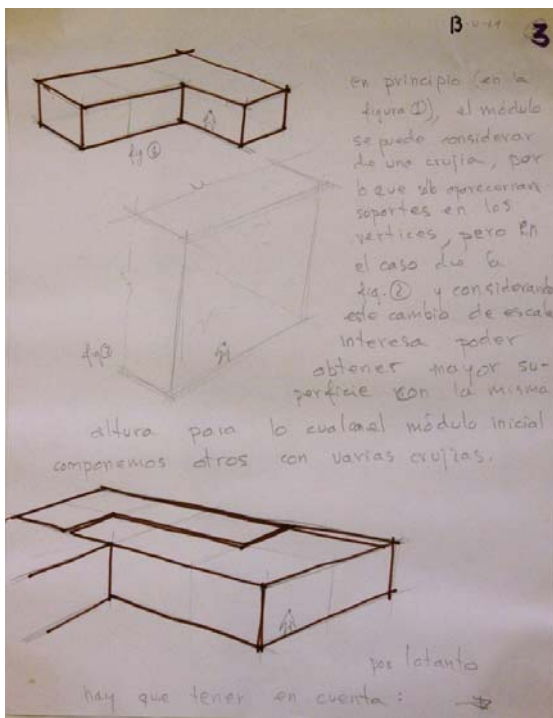 β 3
en principio (en la
figura ①), el módulo
se puede considerar
de una crujía, por
lo que sólo aparecerían
soportes en los
vertices, pero en
el caso de la
fig. ② y considerando
este cambio de escala
interesa poder
obtener mayor su-
perficie con la misma
altura para lo cual al módulo inicial
componemos otros con varias crujías.
fig ①
por lo tanto
hay que tener en cuenta: